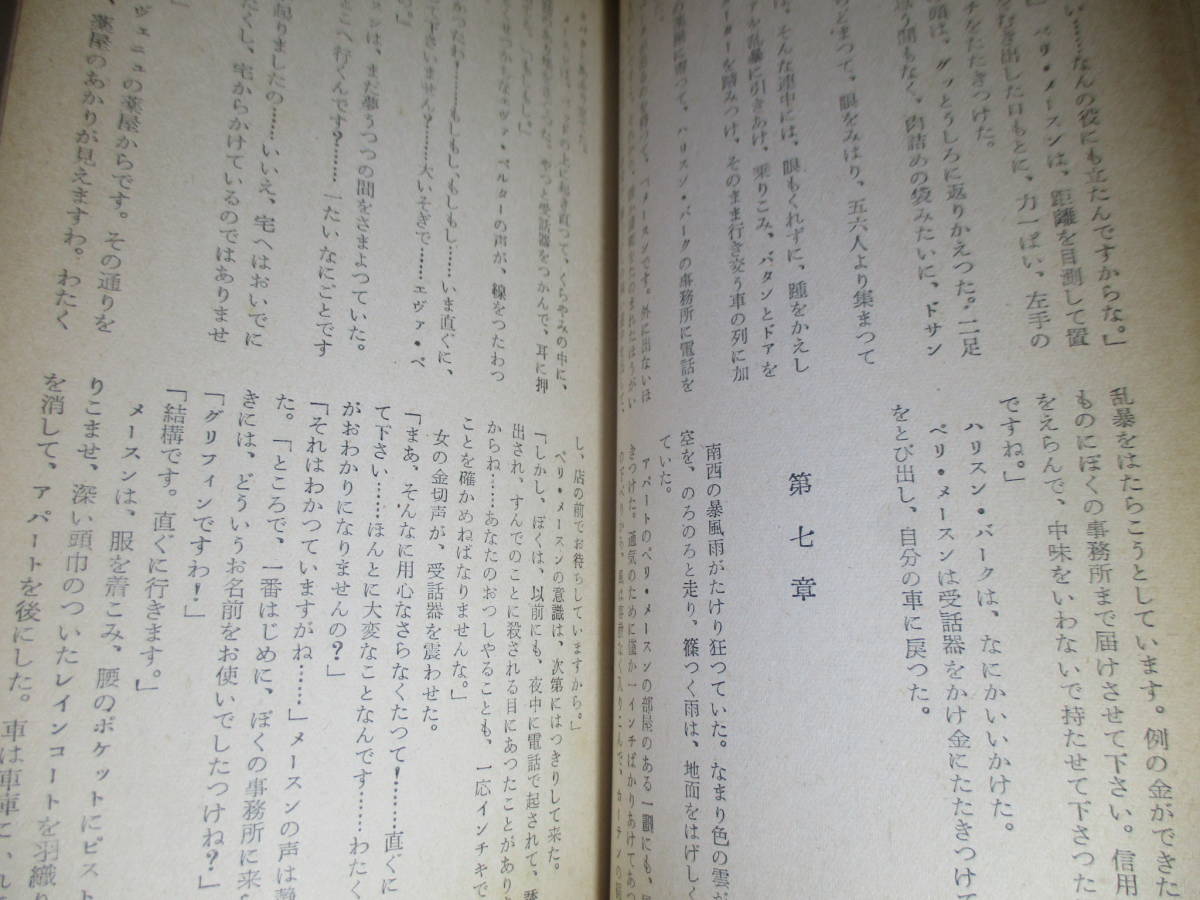 い……なんの役にも立たんですからな。」
ペリ・メースンは、距離を目測して置
き出した日もとに、力一ぱい、左手の
チをたたきつけた。
頭は、グッとうしろに返りかえつた。二足
間もなく、肉詰めの袋みたいに、ドサン
どまつて、眼をみはり、五六人より集まつて
は、そんな連中には、眼もくれずに、踵をかえし
乱暴に引きあけ、乗りこみ、バタンとドアを
ターターを踏みつけ、そのまま行き交う車の列に加
ハリスン・バークの事務所に電話を
「メースンです。外に出ないほ
乱暴をはたらこうとしています。例の金ができた
ものにぼくの事務所まで届けさせて下さい。信用
をえらんで、中味をいわないで持たせて下さつた
ですね。」
ハリスン・バークは、なにかいいかけた。
ペリ・メースンは受話器をかけ金にたたきつけて
をとび出し、自分の車に戻つた。
第七章
南西の暴風雨がたけり狂つていた。なまり色の雲が
空を、のろのろと走り、篠つく雨は、地面をはげしく
ていた。
アパートのペリ・メースンの部屋のある一劃にも、
きつけた。通気のために僅か一インチばかりあけてあつ
の上に起き直つて、くらやみの中に、
やつと受話器をつかんで、耳に押
「もしもし。」
エヴァ・ベルターの声が、線をつたわつ
もしもし、もしもし……いま直ぐに、
て下さいません?……大いそぎで……エヴァ・ベ
」
スンは、まだ夢うつつの間をさまよつていた。
こへ行くんです?……一たい、なにごとです
起りましたの……いいえ、宅へはおいでに
たくし、宅からかけているのではありませ
」
ヴェニュの薬屋からです。その通りを
、薬屋のあかりが見えますわ。わたく
し、店の前でお待ちしていますから。」
ペリ・メースンの意識は、次第にはつきりして来た。
「しかし、ぼくは、以前にも、夜中に電話で起されて、
出され、すんでのことに殺される目にあつたことがあり
からね……あなたのおつしやることも、一応インチキで
ことを確かめねばなりませんな。」
女の金切声が、受話器を震わせた。
「まあ、そんなに用心なさらなくたつて!……直ぐに
て下さい……ほんとに大変なことなんです……わたく
がおわかりになりませんの?」
「それはわかつていますがね……」メースンの声は
た。「ところで、一番はじめに、ぼくの事務所に来
きには、どういうお名前をお使いでしたつけね?」
「グリフィンですわ!」
「結構です。直ぐに行きます。」
メースンは、服を着こみ、腰のポケットにピスト
りこませ、深い頭巾のついたレインコートを羽織り
を消して、アパートを後にした。車は車庫に